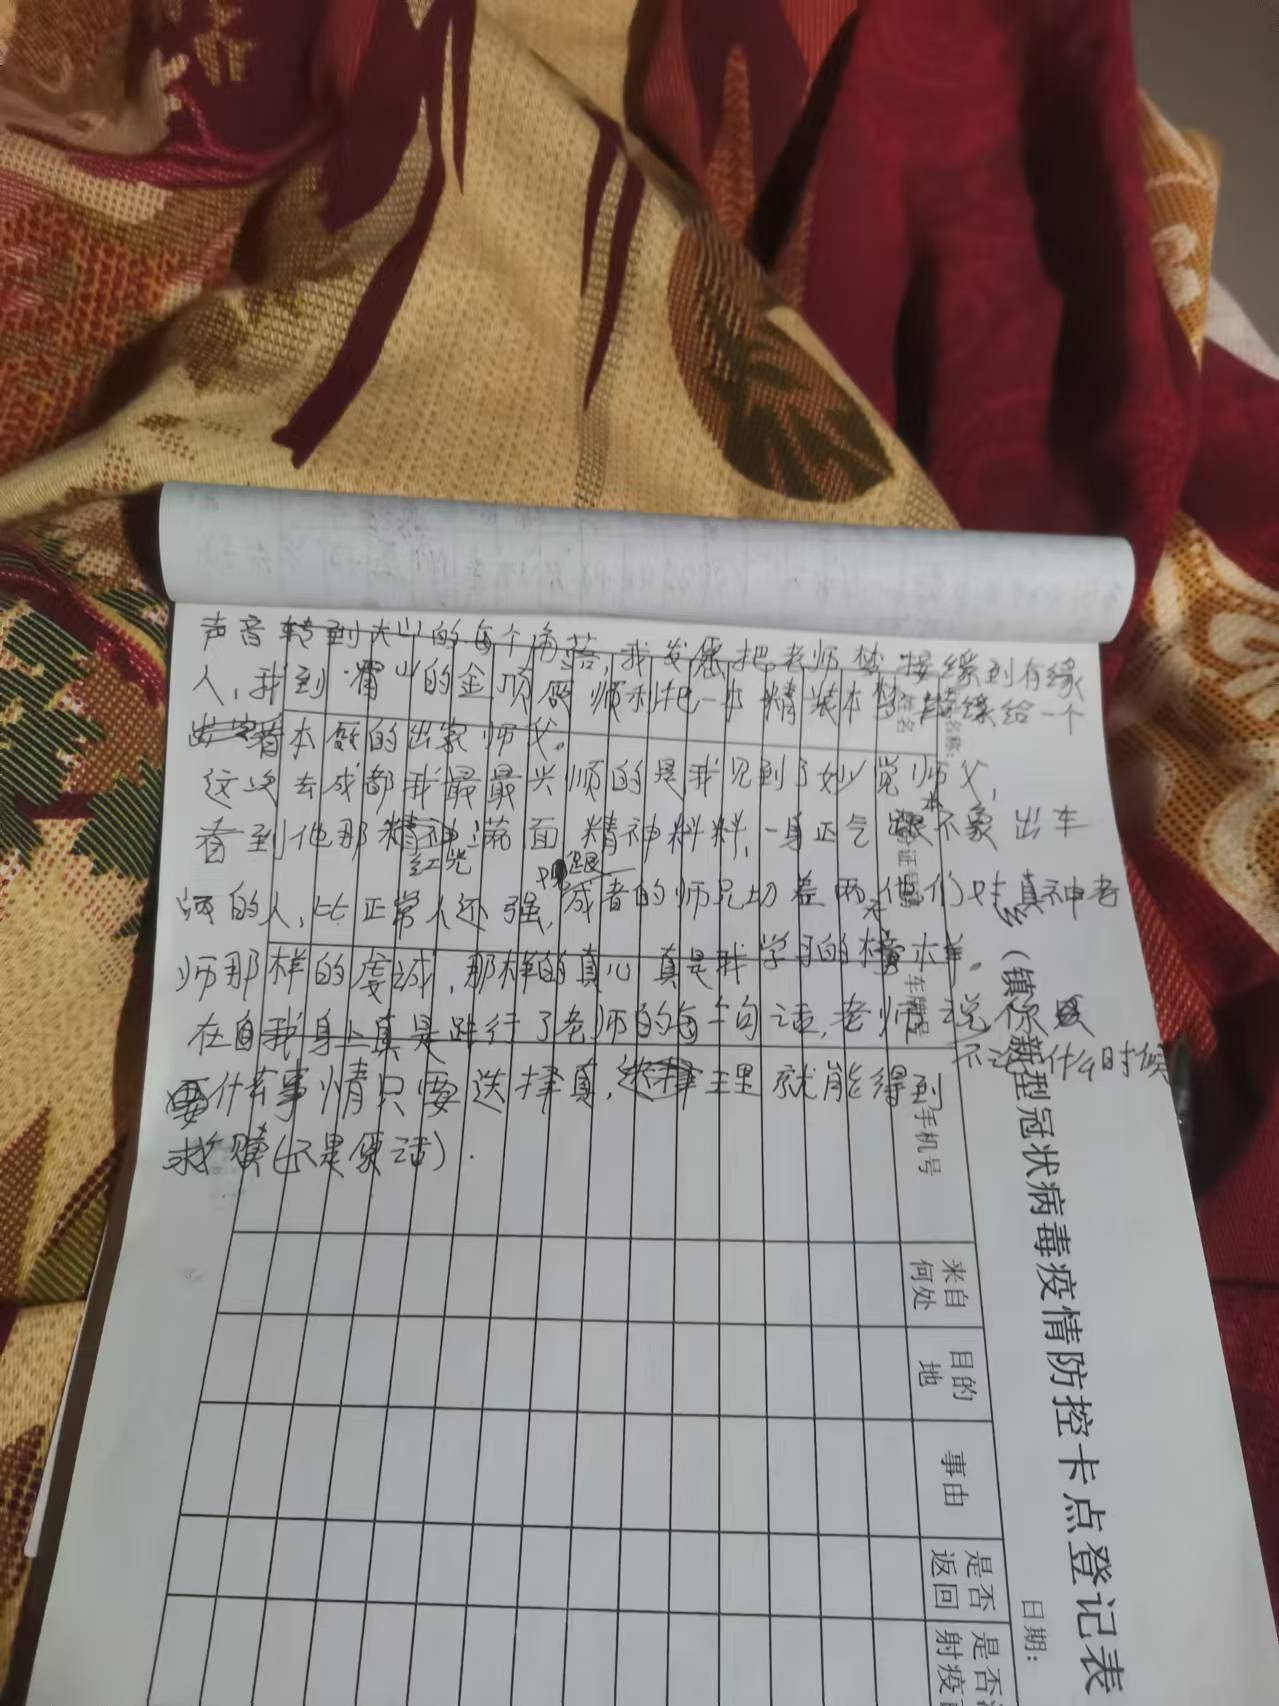 声音转到大山的每个角落,我发愿把老师梦接缘到有缘
人,我到霍山的金顶 师利把一本精装本梦 缘给一个
看本 的出家师父。
这次去成都我最最兴 师的是我见到了妙觉师父,
看到他那精神 面 精神料料,一身正气 根本不象出车
红光
跟
祸的人,比正常人还强, 成者的师兄切差两天他们对真神老
师那样的虔诚,那样的真心真是我学习的榜样。
在自我身上真是践行了老师的每一句话,老师说,你
不论什么时候
什么事情只要选择真, 理就能得到
救赎(不是原话).
乡(镇)新型冠状病毒疫情防控卡点登记表
日期:
名称:
姓名
身份证号
车牌号
手机号
来自何处
目的地
事由
是否返回
是否
射疫